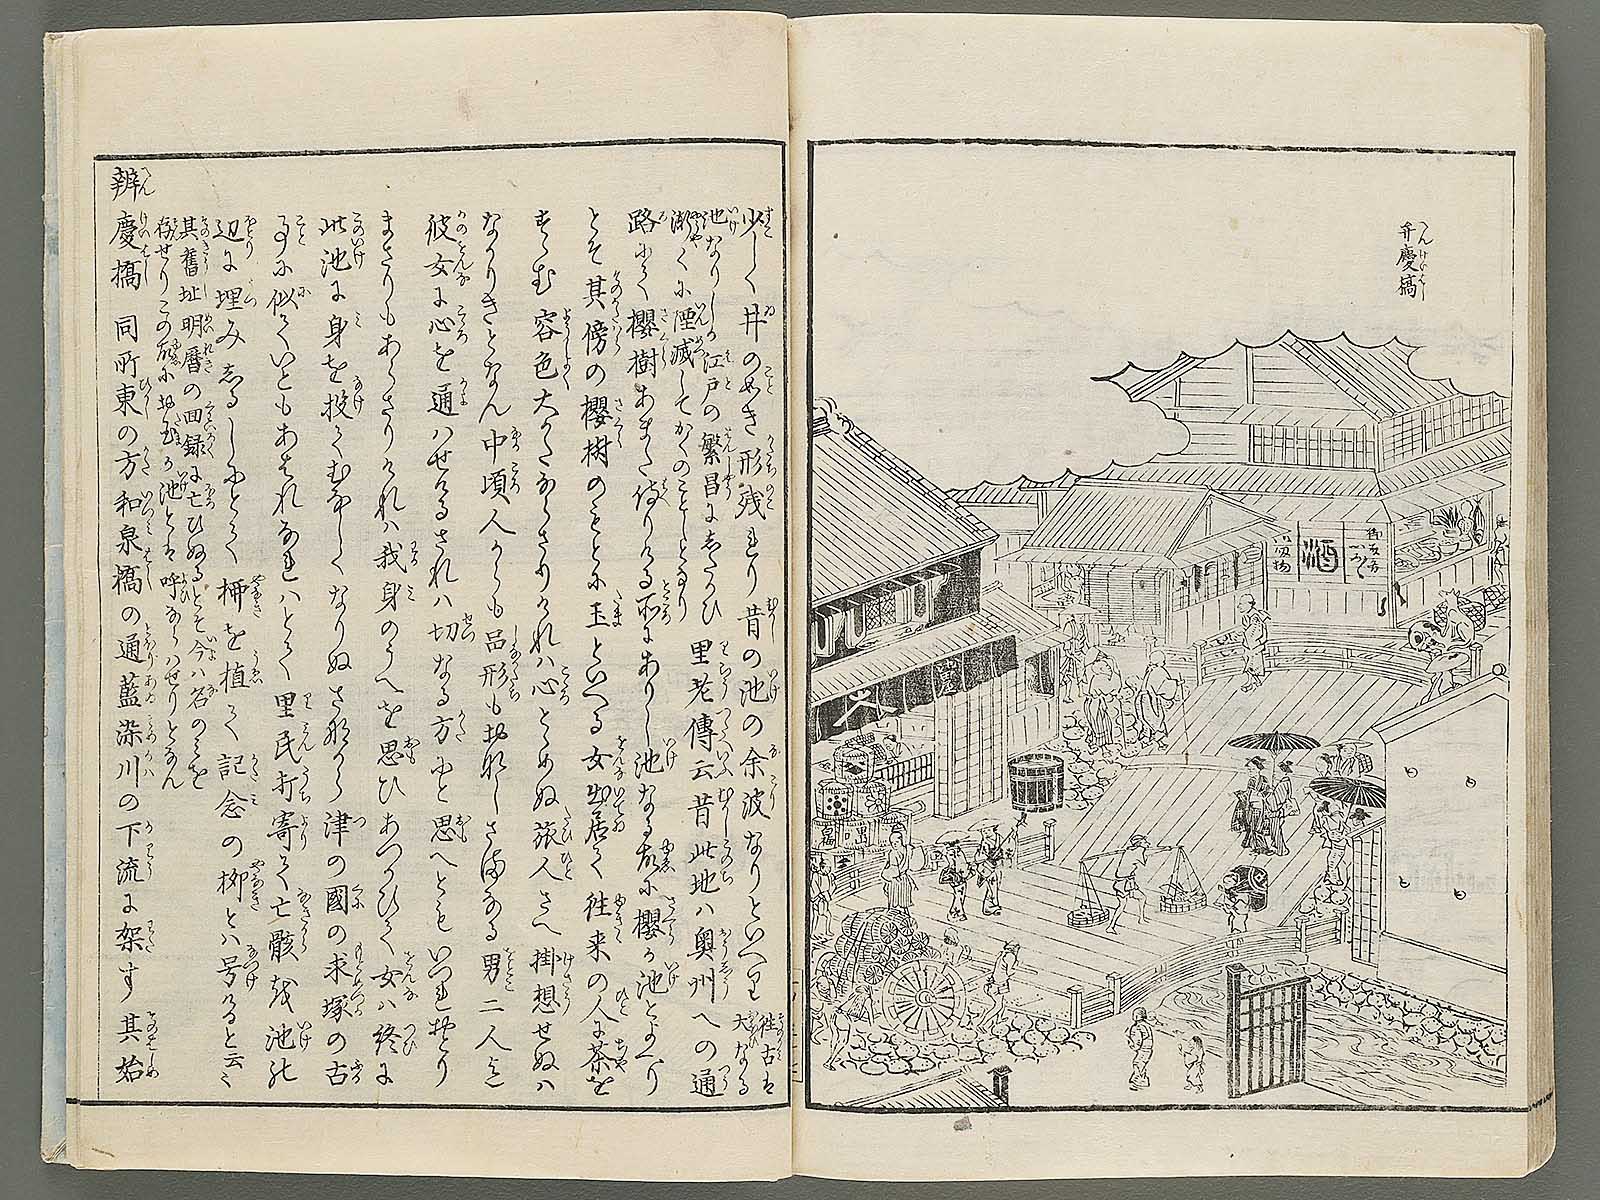 弁慶橋
べんけいばし
酒
少しく井のごとき形残れり昔の池の余波なりといへり往古は大なる
池なりしが江戸の繁昌にしたがひ
漸々に湮滅してかくのごとしとなり
里老傳云昔此地ハ奥州への通
路にて櫻樹あまた侍りける所にありし池なる故に櫻が池とよべり
とぞ其傍の櫻樹のもとに玉といへる女出居て往来の人に茶を
すゝむ容色大かたならざりけれハ心とめぬ旅人さへ掛想せぬハ
なかりきとなん中頃人がらも品形もおなじさまなる男二人迄
彼女に心を通ハせけるされハ切なる方にと思へどもいづれおとり
まさりもあらざりけれハ我身のうへを思ひあつかひて女ハ終に
此池に身を投てむなしくなりぬさながら津の國の求塚の古
ことに似ていともあはれなれハとて里民打寄て亡骸を池の
辺に埋みしるしにとて柳を植て記念の柳とハ号けると云々
其舊址明暦の回録に亡ひぬるとぞ今ハ名のミを
存せりこの故にお玉が池とは呼ならハせりとなん
辨慶橋 同所東の方和泉橋の通藍染川の下流に架す其始